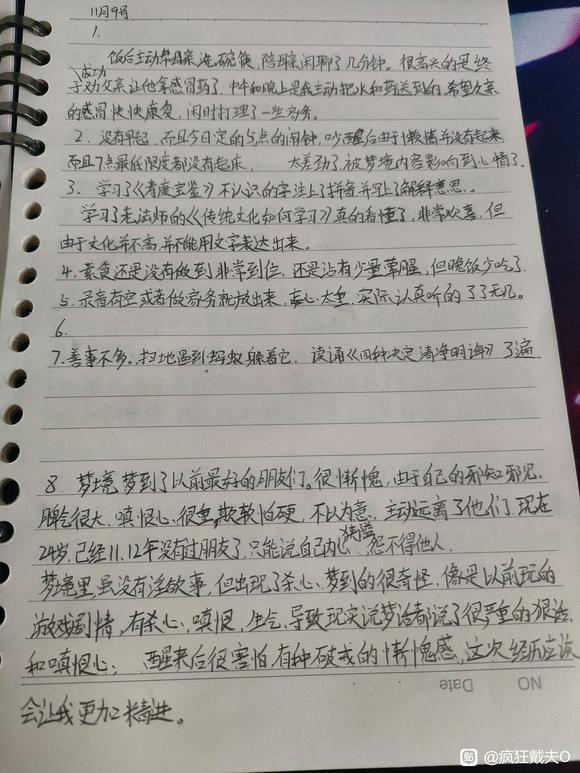 11月9号
1.
饭后主动帮母亲洗碗筷，陪母亲闲聊了几分钟。很高兴的是终
成功
于劝父亲让他拿感冒药了，中午和晚上是我主动把水和药送到的，希望父亲
的感冒快快康复，闲时打理了一些家务。
2、没有早起，而且今日定的5点的闹钟，吵醒后由于懒惰并没有起来，
而且7点最低限度都没有起床， 太差劲了被梦境内容影响到心情了。
3、学习了《寿康宝鉴》不认识的字注上了拼音并写上了解释意思。
学习了老法师的《传统文化如何学习》真的看懂了，非常欢喜，但
由于文化并不高，并不能用文字表达出来。
4、素食还是没有做到非常到位，还是沾有少量荤腥，但晚饭少吃了
5、录音有空或者做家务就放出来，贪心太重，实际认真听的了了无几。
6.
7、善事不多，扫地遇到蚂蚁躲着它、读诵《四种决定清净明诲》了遍
8、梦境，梦到了以前最好的朋友们。很惭愧，由于自己的邪知邪见。
脾气很大、嗔恨心很重，欺软怕硬，不以为意、主动远离了他们，现在
狭隘
24岁，已经11、12年没有过朋友了，只能说自己内心怨不得他人。
梦境里虽没有淫欲事，但出现了杀心、梦到的很奇怪，像是以前玩的
游戏剧情，有杀心、嗔恨、生气，导致现实说梦话都说了很严重的狠话，
和嗔恨心； 醒来后很害怕，有种破戒的惭愧感，这次经历应该
会让我更加精进。
NO Date
贴 @疯狂戴夫O